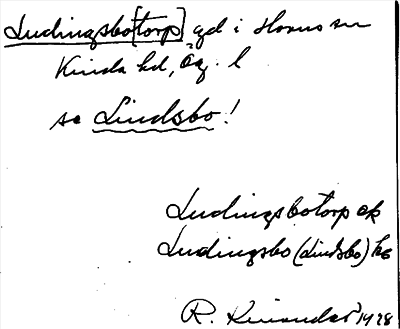 Ludingsbo[torp] gd i Horns sn
Kinda hd, Ög. l
se Lindsbo!
Ludingsbotorp ek
Ludingsbo (Lindsbo) ke
R. Kinander 1928